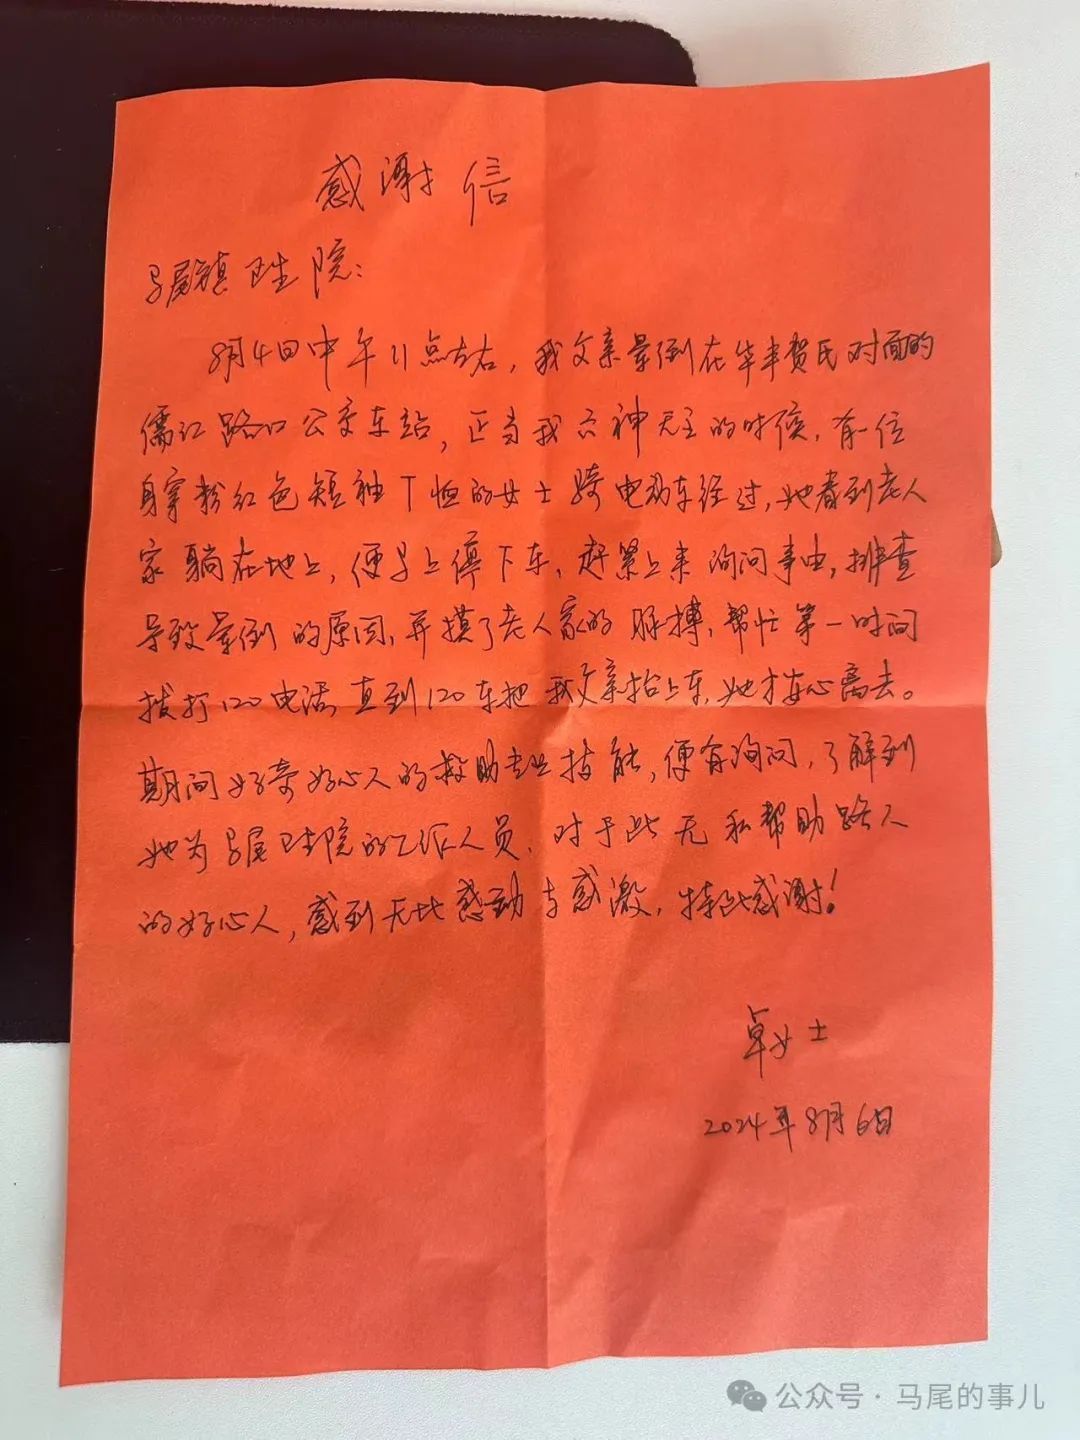 感谢信
马尾镇卫生院：
8月4日中午11点左右，我父亲晕倒在华丰贺氏对面的
儒江路口公交车站，正当我六神无主的时候，有一位
身穿粉红色短袖T恤的女士骑电动车经过，她看到老人
家躺在地上，便马上停下车，赶紧上来询问事由，排查
导致晕倒的原因，并摸了老人家的脉搏，帮忙第一时间
拨打120电话，直到120车把我父亲抬上车，她才安心离去。
期间好奇好心人的救助专业技能，便有询问，了解到
她为马尾卫生院的工作人员，对于此无私帮助路人
的好心人，感到无比感动与感激，特此感谢！
卓女士
2024年8月6日
公众号·马尾的事儿